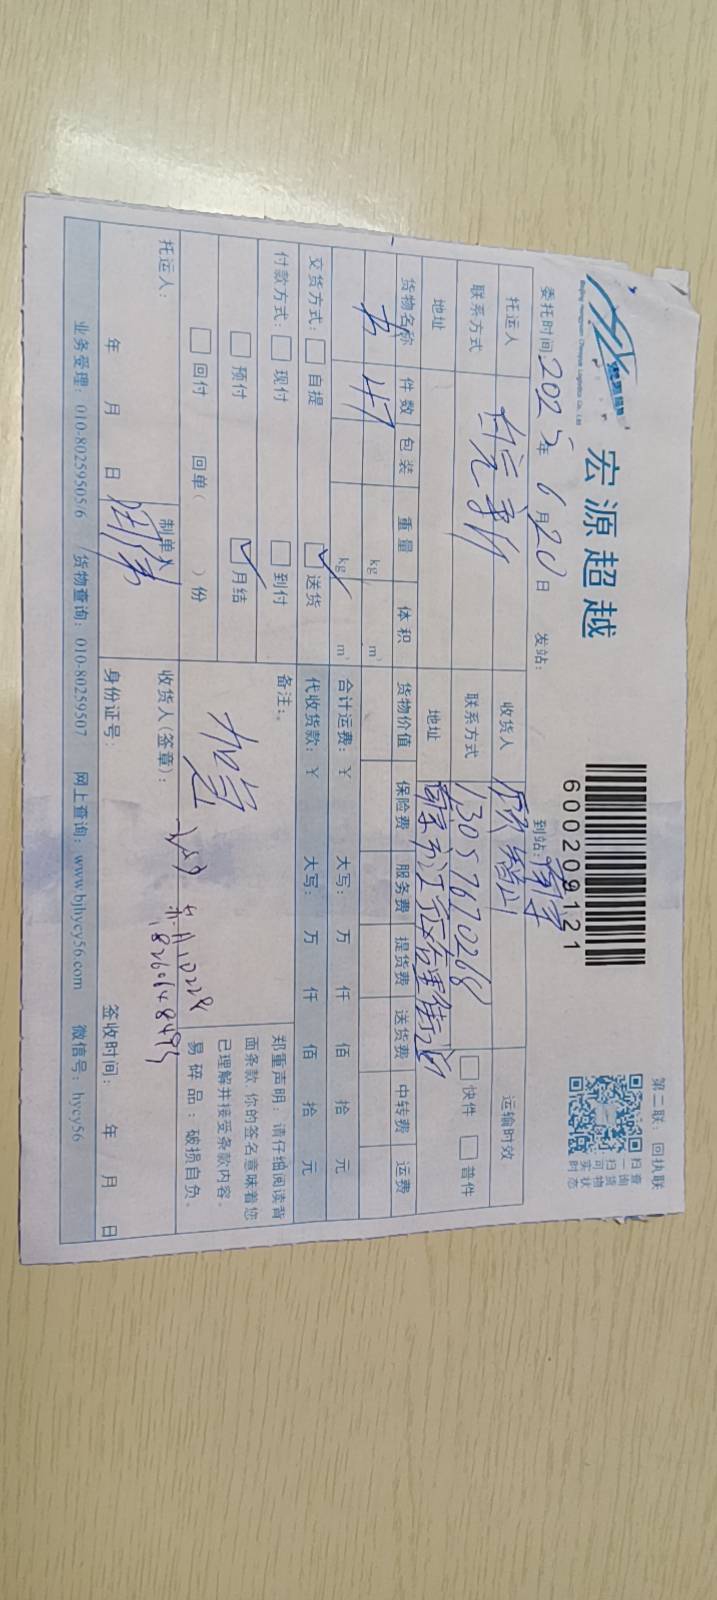 第二联：回执联
宏源超越
Beijing Hongyuan Chaoyue Logistics Co., Ltd.
600209121
扫一扫可实时
查询货物状态
委托时间2025年6月20日 发站： 到站：南京
托运人 收货人 运输时效
联系方式 联系方式 13057670268 快件 普件
地址 地址
货物名称 件数 包装 重量 体积 货物价值 保险费 服务费 提货费 送货费 中转费 运费
书 47 kg m³
kg m³ 合计运费：￥ 大写： 万 仟 佰 拾 元
交货方式： 自提 送货 代收货款：￥ 大写： 万 仟 佰 拾 元
付款方式： 现付 到付 备注：
预付 月结
回付 回单（ ）份
加急
郑重声明：请仔细阅读背
面条款，你的签名意味着您
已理解并接受条款内容。
易碎品：破损自负。
托运人： 制单人 收货人（签章）：
18260148493
年 月 日 身份证号： 签收时间： 年 月 日
业务受理：010-80259505/6 货物查询：010-80259507 网上查询：www.bjhycy56.com 微信号：hycy56